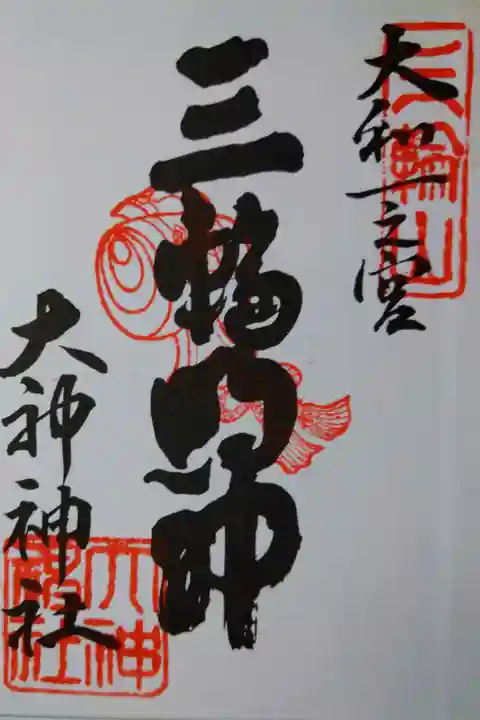 大和一之宮
三輪山
三輪明神
大神神社
大神神社